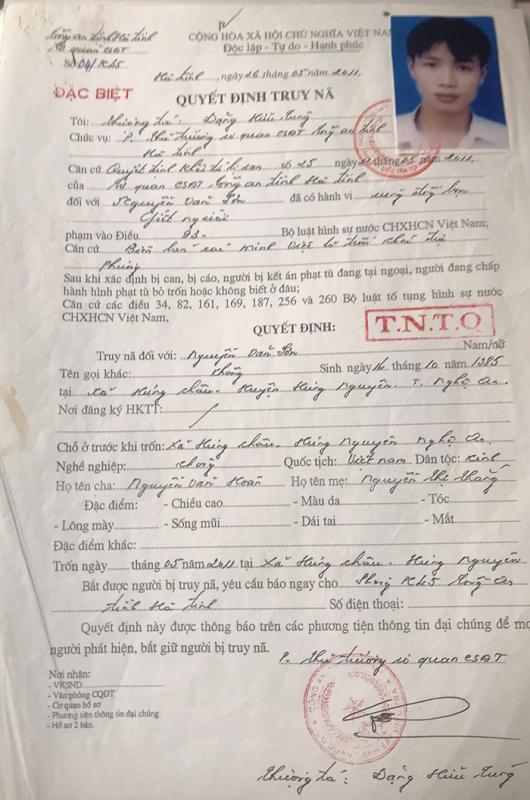 Công an tỉnh Hà Tĩnh
Cơ quan CSĐT
Số 04/PC45
CỘNG HÒA XÃ HỘI CHỦ NGHĨA VIỆT NAM
Độc lập - Tự do - Hạnh phúc
Hà Tĩnh, ngày 26 tháng 05 năm 2011
ĐẶC BIỆT
QUYẾT ĐỊNH TRUY NÃ
Tôi: Thượng tá: Đặng Hữu Tùng
Chức vụ: P. thủ trưởng cơ quan CSĐT Công an tỉnh
Hà Tĩnh
Căn cứ Quyết định khởi tố bị can số 25 ngày 05 năm 2011
của Cơ quan CSĐT Công an tỉnh Hà Tĩnh
đối với Nguyễn Văn Sơn đã có hành vi
Giết người
phạm vào Điều 93 Bộ luật hình sự nước CHXHCN Việt Nam;
Căn cứ Biên bản xác minh
Sau khi xác định bị can, bị cáo, người bị kết án phạt tù đang tại ngoại, người đang chấp
hành hình phạt tù bỏ trốn hoặc không biết ở đâu;
Căn cứ các điều 34, 82, 161, 169, 187, 256 và 260 Bộ luật tố tụng hình sự nước
CHXHCN Việt Nam,
QUYẾT ĐỊNH:
T.N.T.Q
Truy nã đối với: Nguyễn Văn Sơn Nam/nữ
Tên gọi khác: không Sinh ngày tháng 10 năm 1985
tại xã Hưng Châu. Huyện Hưng Nguyên. T. Nghệ An.
Nơi đăng ký HKTT:
Chỗ ở trước khi trốn: Xã Hưng Châu. Hưng Nguyên Nghệ An.
Nghề nghiệp: không Quốc tịch: Việt nam Dân tộc: Kinh
Họ tên cha: Nguyễn Văn Hoàn Họ tên mẹ: Nguyễn thị thắng
Đặc điểm: - Chiều cao - Màu da - Tóc
- Lông mày - Sống mũi - Dái tai - Mắt
Đặc điểm khác:
Trốn ngày tháng 05 năm 2011 tại Xã Hưng Châu. Hưng Nguyên
Bắt được người bị truy nã, yêu cầu báo ngay cho Phòng PC45 Công An
tỉnh Hà Tĩnh Số điện thoại:
Quyết định này được thông báo trên các phương tiện thông tin đại chúng để mọi
người phát hiện, bắt giữ người bị truy nã.
P. thủ trưởng cơ quan CSĐT
Nơi nhận:
- VKSND
- Văn phòng CQĐT
- Cơ quan hồ sơ
- Phương tiện thông tin đại chúng
- Hồ sơ 2 bản.
thượng tá: Đặng Hữu Tùng